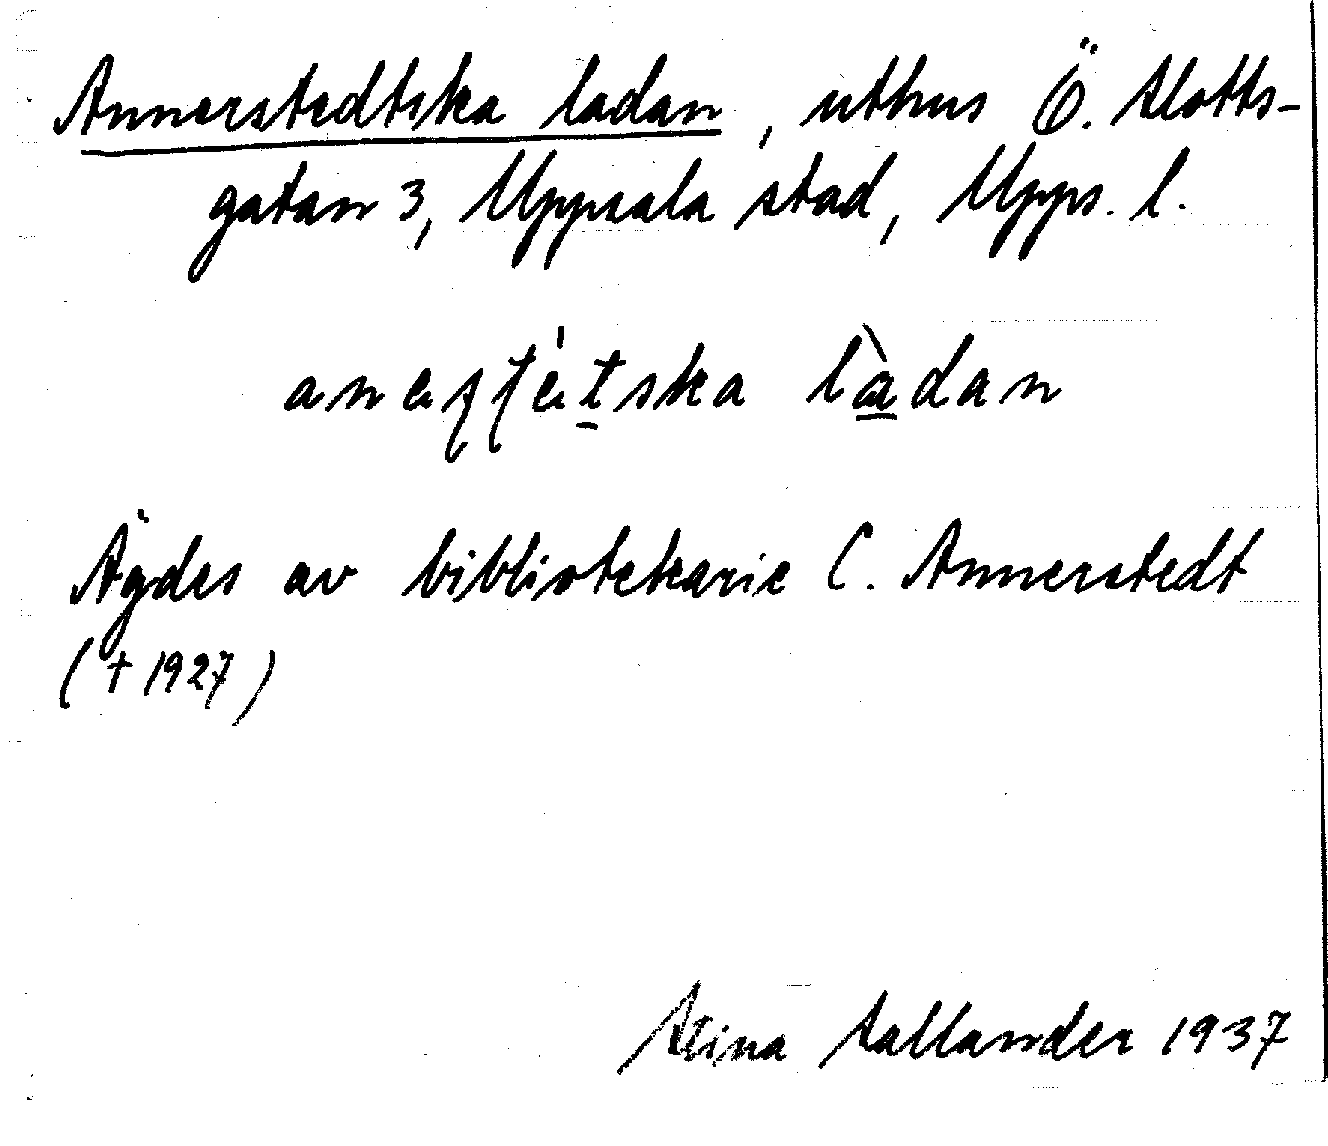 Annerstedtska ladan, uthus Ö. Slotts-
gatan 3, Uppsala stad, Upps. l.
ladan
Ägdes av bibliotekarie C. Annerstedt
(† 1927)
Stina Sallander 1937